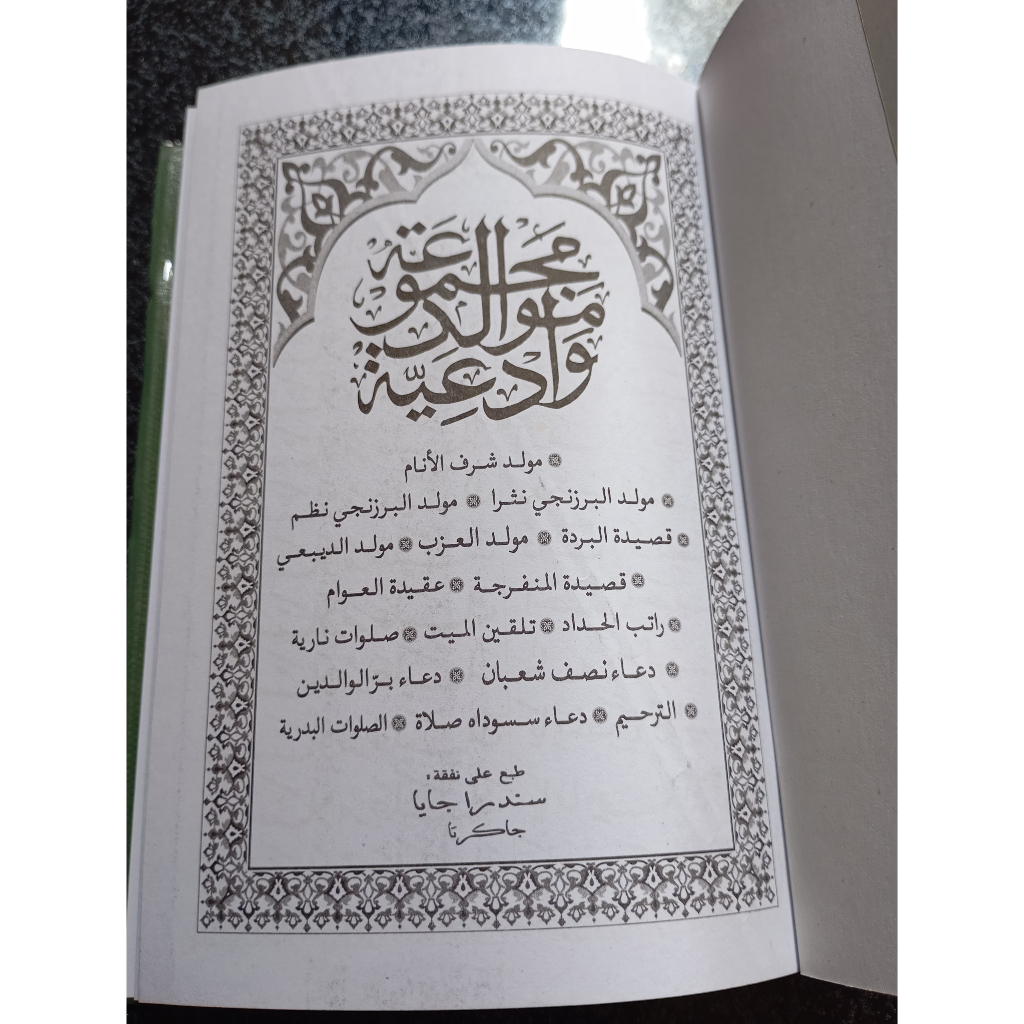 مجموعة
موالد
وادعية
مولد شرف الأنام
مولد البرزنجي نثرا مولد البرزنجي نظم
قصيدة البردة مولد العزب مولد الديبعي
قصيدة المنفرجة عقيدة العوام
راتب الحداد تلقين الميت صلوات نارية
دعاء نصف شعبان دعاء برّ الوالدين
الترحيم دعاء سسوداه صلاة الصلوات البدرية
طبع على نفقة :
سندرا جايا
جاكرتا